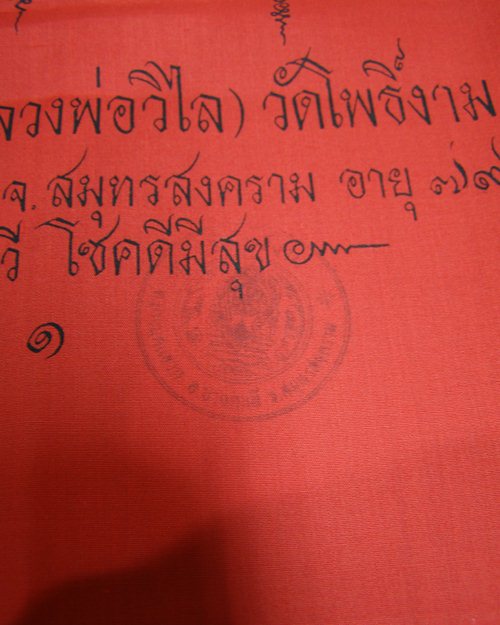 ลวงพ่อวิไล) วัดโพธิ์งาม
จ. สมุทรสงคราม อายุ ๗๙
วี โชคดีมีสุข ๛
๑